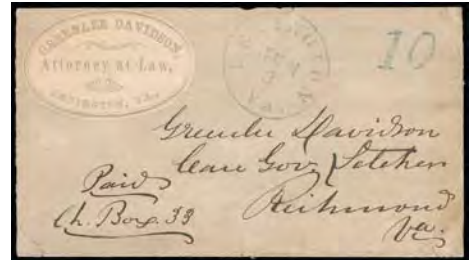 GREENLEE DAVIDSON,
Attorney at Law,
LEXINGTON, VA.
LEXINGTON
JUN
3
Va.
10
Greenlee Davidson
Care Gov. Letcher
Richmond
Va.
Paid
Ch. Box. 33